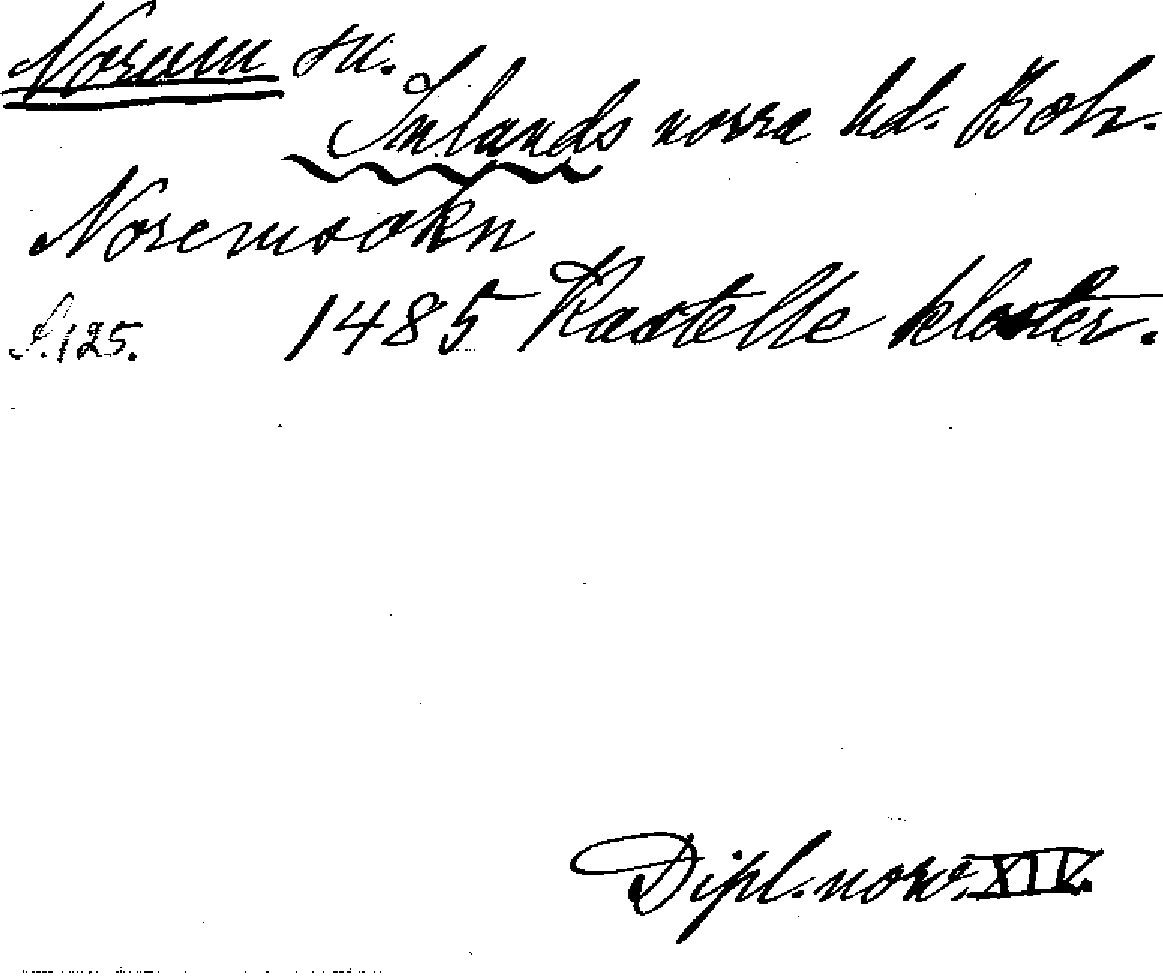 Norum sn.
Inlands norra hd. Boh.
Noremsokn
S. 125. 1485 Kastelle kloster.
Dipl. norv. XIV.